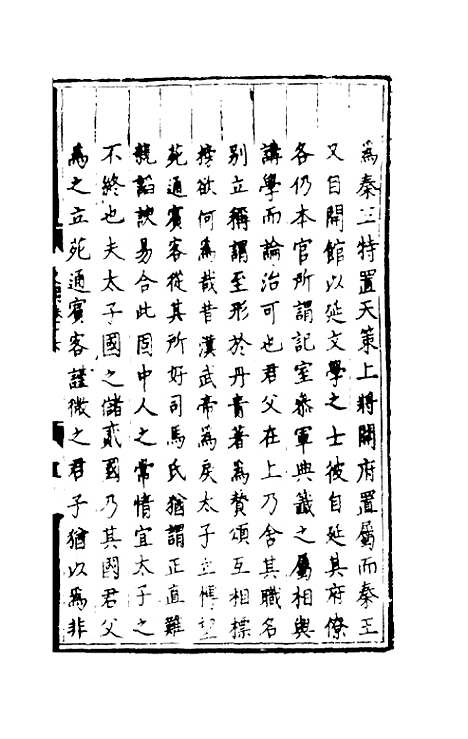 為秦王特置天策上將開府置屬而秦王
又自開館以延文學之士彼自延其府僚
各仍本官所謂記室參軍典籤之屬相與
講學而論治可也君父在上乃舍其職名
別立稱謂至形於丹青著為贊頌互相標
榜欲何為哉昔漢武帝為戾太子立博望
苑通賓客從其所好司馬氏猶謂正直難
親諂諛易合此固中人之常情宜太子之
不終也夫太子國之儲貳國乃其國君父
為之立苑通賓客謹微之君子猶以為非